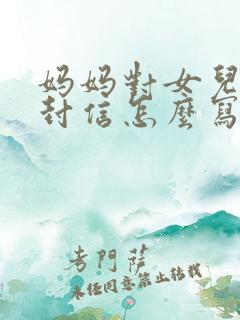 妈妈對女兒
封信怎麼寫
考門薩
未经同意禁止转载